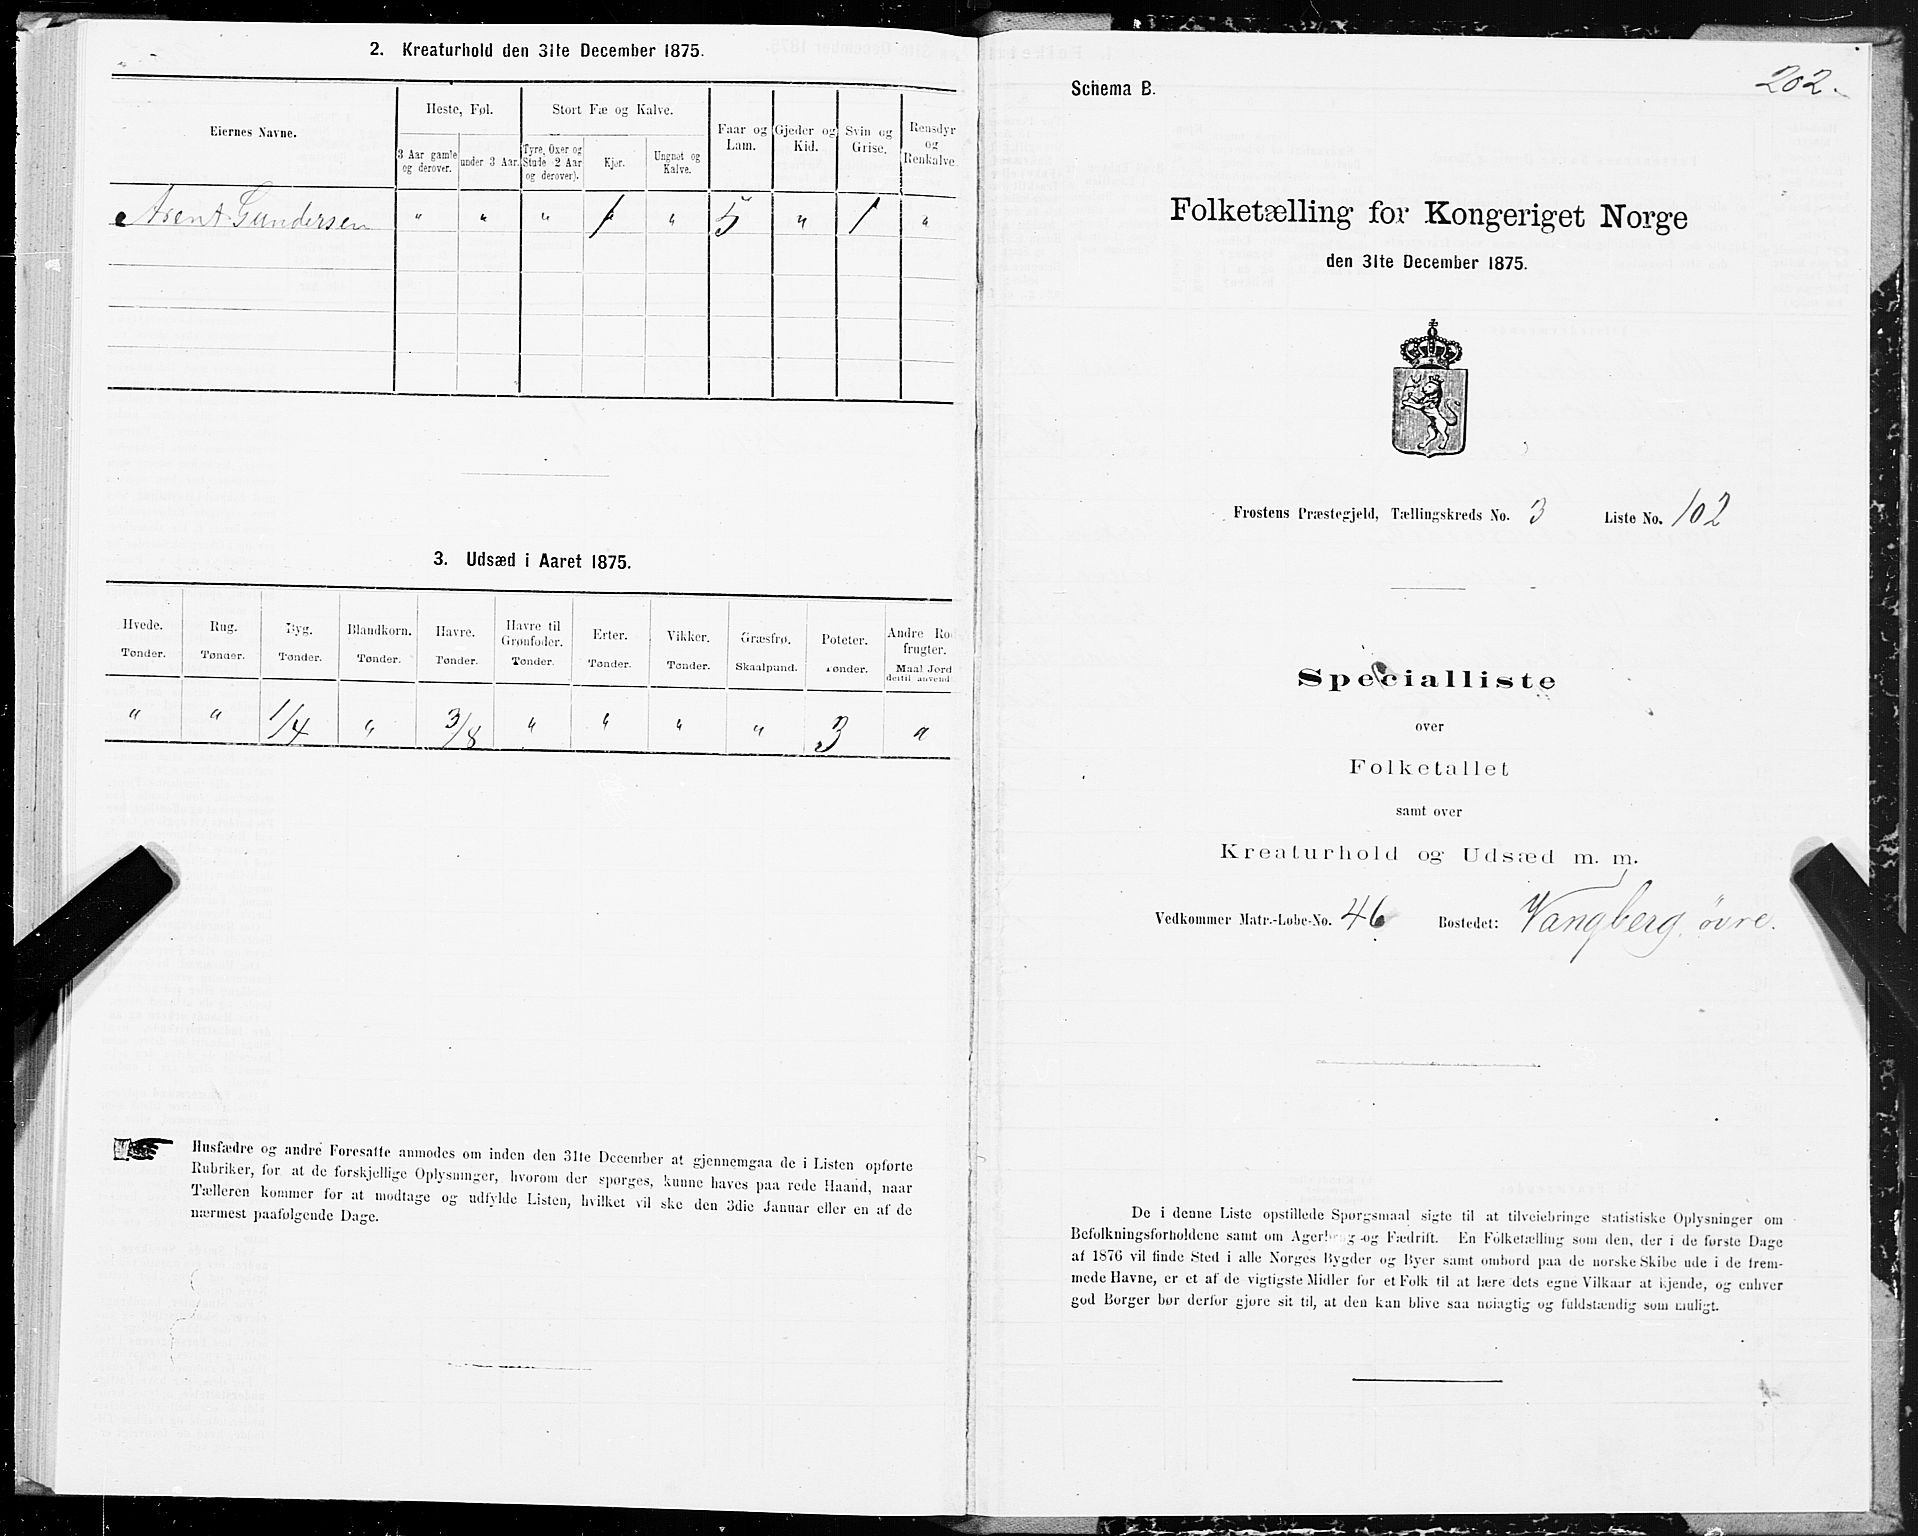 2. Kreaturhold den 31te December 1875.
Eiernes Navne.
Heste, Føl.
Stort Fæ og Kalve.
Faar og Lam.
Gjeder og Kid.
Svin og Grise.
Rensdyr og Renkalve.
3 Aar gamle og derover.
under 3 Aar.
Tyre, Oxer og Stude 2 Aar og derover).
Kjør.
Ungnøt og Kalve.
Arent Gundersen " " " 1 " 5 " 1 "
3. Udsæd i Aaret 1875.
Hvede. Rug. Byg. Blandkorn. Havre. Havre til Grønfoder. Erter. Vikker. Græsfrø. Poteter. Andre Rodfrugter.
Tønder. Tønder. Tønder. Tønder. Tønder. Tønder. Tønder. Tønder. Skaalpund. Tønder. Maal Jord dertil anvendt
" " 1/4 " 3/8 " " " " 3 "
Husfædre og andre Foresatte anmodes om inden den 31te December at gjennemgaa de i Listen opførte
Rubriker, for at de forskjellige Oplysninger, hvorom der spørges, kunne haves paa rede Haand, naar
Tælleren kommer for at modtage og udfylde Listen, hvilket vil ske den 3die Januar eller en af de
nærmest paafølgende Dage.
202.
Schema B.
Folketælling for Kongeriget Norge
den 31te December 1875.
Frostens Præstegjeld, Tællingskreds No. 3 Liste No. 102
Specialliste
over
Folketallet
samt over
Kreaturhold og Udsæd m. m.
Vedkommer Matr.-Løbe-No. 46 Bostedet: Vangberg, øvre.
De i denne Liste opstillede Spørgsmaal sigte til at tilveiebringe statistiske Oplysninger om
Befolkningsforholdene samt om Agerbrug og Fædrift. En Folketælling som den, der i de første Dage
af 1876 vil finde Sted i alle Norges Bygder og Byer samt ombord paa de norske Skibe ude i de frem-
mede Havne, er et af de vigtigste Midler for et Folk til at lære dets egne Vilkaar at kjende, og enhver
god Borger bør derfor gjøre sit til, at den kan blive saa nøiagtig og fuldstændig som muligt.